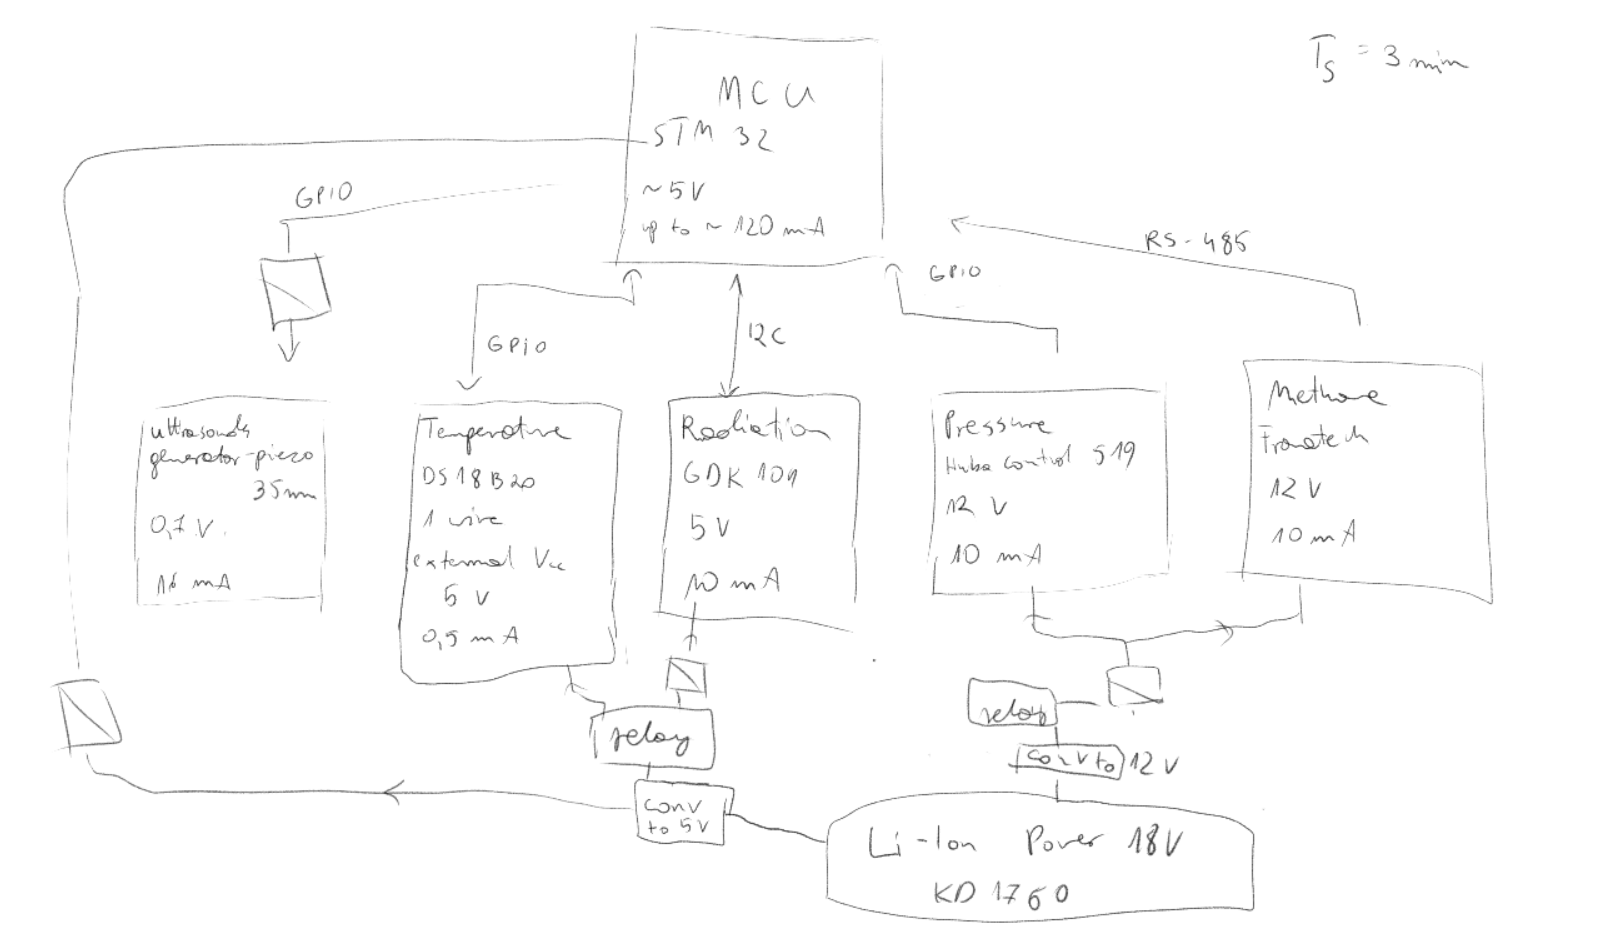 T_S = 3 min
MCU
STM 32
~5V
up to ~ 120 mA
GPIO
RS-485
GPIO
GPiO
I2C
ultrasounds
generator-piezo
35mm
0,7 V.
16 mA
Temperature
DS18B20
1 wire
external Vcc
5 V
0,5 mA
Radiation
GDK 101
5 V
10 mA
Pressure
Huba Control 519
12 V
10 mA
Methane
Franatech
12 V
10 mA
relay
conv
to 5V
relay
conv to 12 V
Li-Ion Power 18V
KD 1760